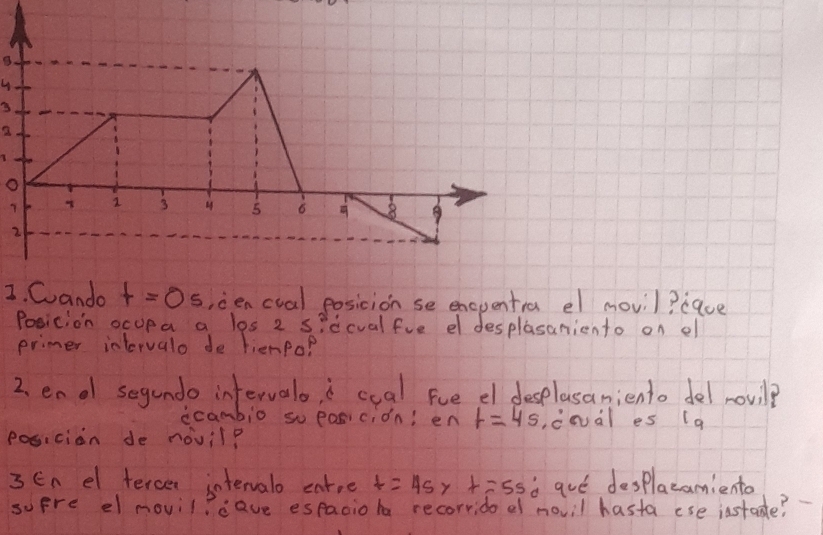 5
4
3
2
1
0
1
2
1 2 3 4 5 6 7 8 9
1. Cuando t = 0 s, ¿en cual posición se encuentra el movil? ¿que
Posición ocupa a los 2 s? ¿cual fue el desplasamiento en el
primer intervalo de tiempo?
2. en el segundo intervalo, ¿ cual fue el desplasamiento del movil?
¿cambio su posición: en t = 4s, ¿cuál es la
posición de móvil?
3 En el tercer intervalo entre t = 4s y t = 5s ¿ qué desplacamiento
sufre el movil? ¿Que espacio ha recorrido el movil hasta ese instante?